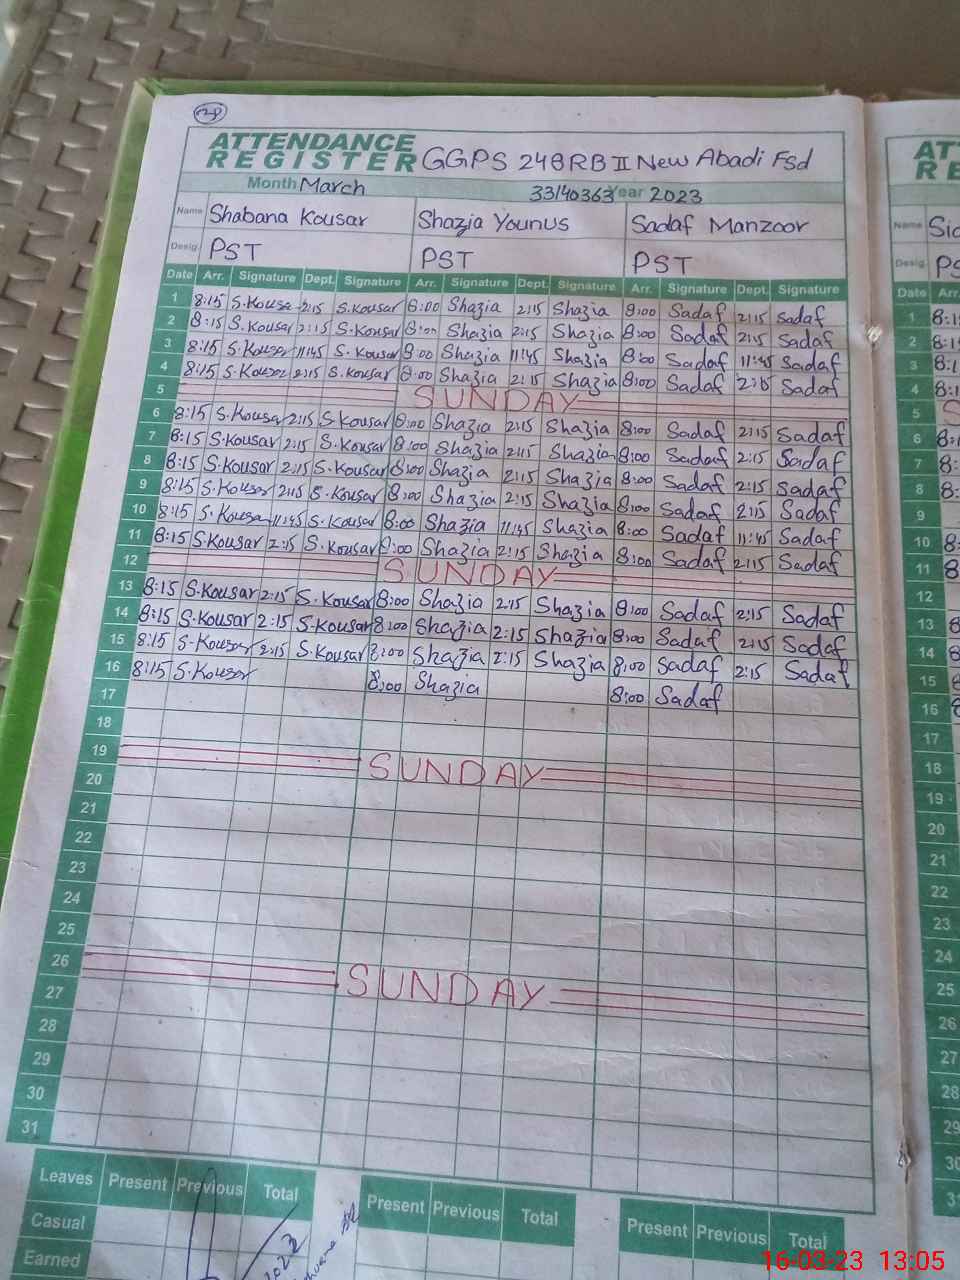 ATTENDANCE
REGISTER GGPS 248RB II New Abadi Fsd
Month March 33140363 Year 2023
Name Shabana Kousar Shazia Younus Sadaf Manzoor
Desig. PST PST PST
Date Arr. Signature Dept. Signature Arr. Signature Dept. Signature Arr. Signature Dept. Signature
1 8:15 S.Kousar 2:15 S.Kousar 8:00 Shazia 2:15 Shazia 8:00 Sadaf 2:15 Sadaf
2 8:15 S.Kousar 2:15 S.Kousar 8:00 Shazia 2:15 Shazia 8:00 Sadaf 2:15 Sadaf
3 8:15 S.Kousar 11:45 S.Kousar 8:00 Shazia 11:45 Shazia 8:00 Sadaf 11:45 Sadaf
4 8:15 S.Kousar 2:15 S.Kousar 8:00 Shazia 2:15 Shazia 8:00 Sadaf 2:15 Sadaf
5 SUNDAY
6 8:15 S.Kousar 2:15 S.Kousar 8:00 Shazia 2:15 Shazia 8:00 Sadaf 2:15 Sadaf
7 8:15 S.Kousar 2:15 S.Kousar 8:00 Shazia 2:15 Shazia 8:00 Sadaf 2:15 Sadaf
8 8:15 S.Kousar 2:15 S.Kousar 8:00 Shazia 2:15 Shazia 8:00 Sadaf 2:15 Sadaf
9 8:15 S.Kousar 2:15 S.Kousar 8:00 Shazia 2:15 Shazia 8:00 Sadaf 2:15 Sadaf
10 8:15 S.Kousar 11:45 S.Kousar 8:00 Shazia 11:45 Shazia 8:00 Sadaf 11:45 Sadaf
11 8:15 S.Kousar 2:15 S.Kousar 8:00 Shazia 2:15 Shazia 8:00 Sadaf 2:15 Sadaf
12 SUNDAY
13 8:15 S.Kousar 2:15 S.Kousar 8:00 Shazia 2:15 Shazia 8:00 Sadaf 2:15 Sadaf
14 8:15 S.Kousar 2:15 S.Kousar 8:00 Shazia 2:15 Shazia 8:00 Sadaf 2:15 Sadaf
15 8:15 S.Kousar 2:15 S.Kousar 8:00 Shazia 2:15 Shazia 8:00 Sadaf 2:15 Sadaf
16 8:15 S.Kousar 8:00 Shazia 8:00 Sadaf
17
18
19 SUNDAY
20
21
22
23
24
25
26 SUNDAY
27
28
29
30
31
Leaves Present Previous Total Present Previous Total Present Previous Total
Casual
Earned
Name
Desig.
Date Arr.
1
2
3
4
5
6
7
8
9
10
11
12
13
14
15
16
17
18
19
20
21
22
23
24
25
26
27
28
29
30
16-03-23 13:05